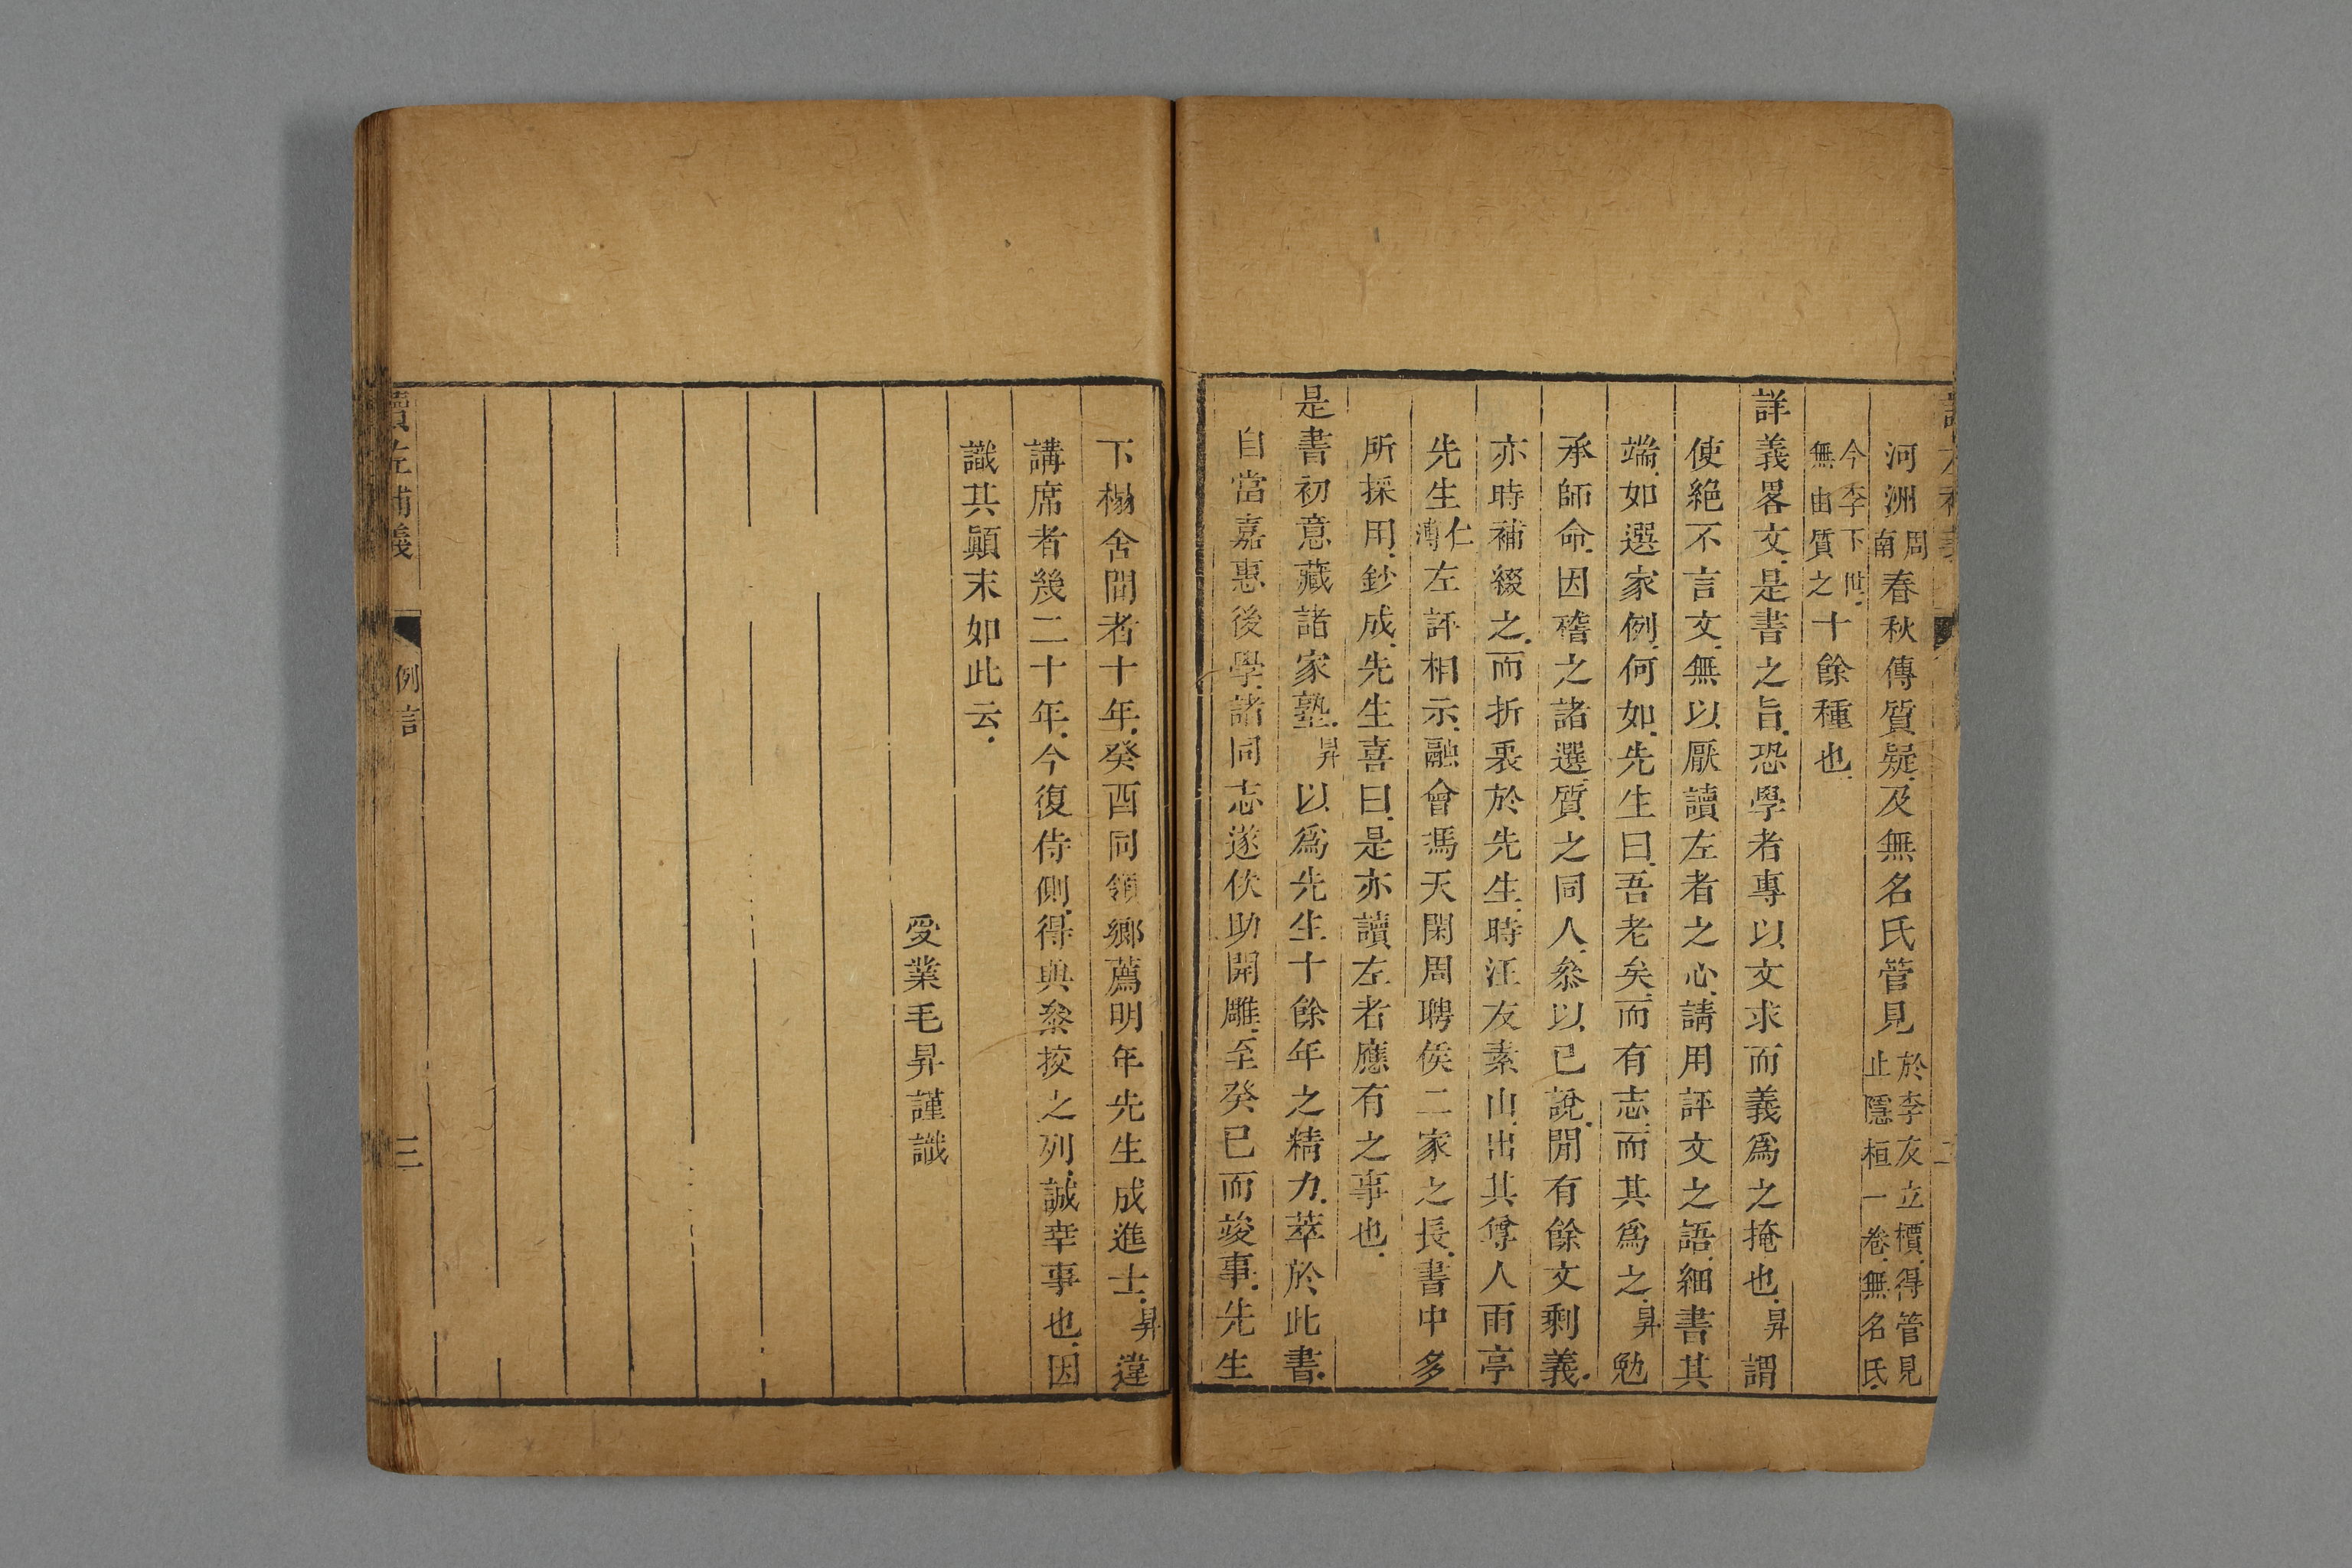 河洲周南春秋傳質疑及無名氏管見於李友立櫝得管見止隱桓一卷無名氏
今李下世無由質之十餘種也
詳義畧文是書之旨恐學者專以文求而義爲之掩也昇謂
使絶不言文無以厭讀左者之心請用評文之語細書其
端如選家例何如先生曰吾老矣而有志而其爲之昇勉
承師命因稽之諸選質之同人叅以已說閒有餘文剩義
亦時補綴之而折衷於先生時汪友素山出其尊人雨亭
先生仁溥左評相示融會馮天閑周聘侯二家之長書中多
所採用鈔成先生喜曰是亦讀左者應有之事也
是書初意藏諸家塾昇以爲先生十餘年之精力萃於此書
自當嘉惠後學諸同志遂佽助開雕至癸巳而竣事先生
下榻舍間者十年癸酉同領鄉薦明年先生成進士昇違
講席者幾二十年今復侍側得與叅挍之列誠幸事也因
識其顚末如此云
受業毛昇謹識
讀左補義 例言 三